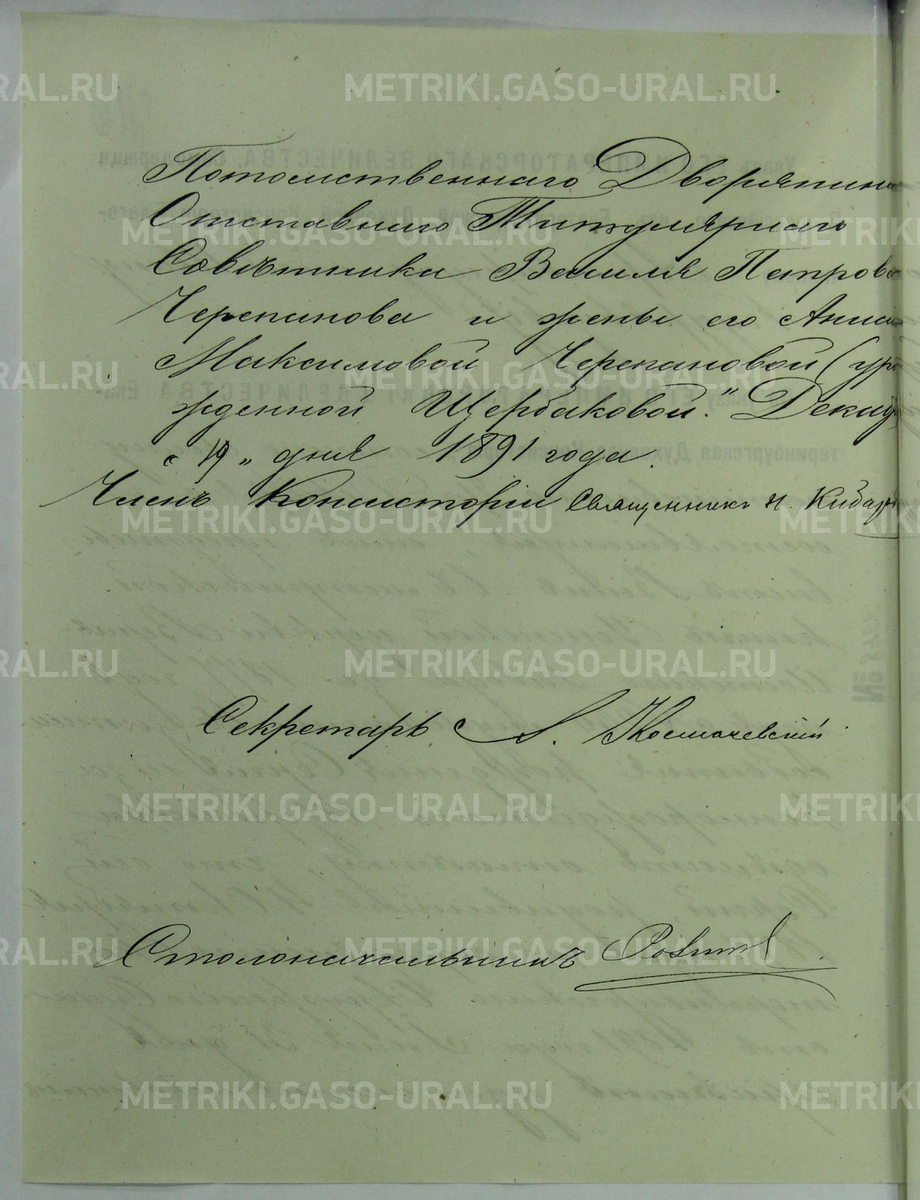 Потомственнаго Дворянина
Отставного Титулярнаго
Совѣтника Василя Петрова
Черепанова и жены его Анны
Максимовой Черепановой (уро
жденной Щербаковой." Декабр
„ 19 „ дня 1891 года.
Членъ Консисторіи Священникъ Н.
Секретарь А. Космачевскій
Столоначальникъ
METRIKI.GASO-URAL.RU